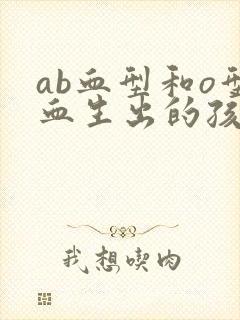 ab血型和o型
血生出的孩
我想喫肉